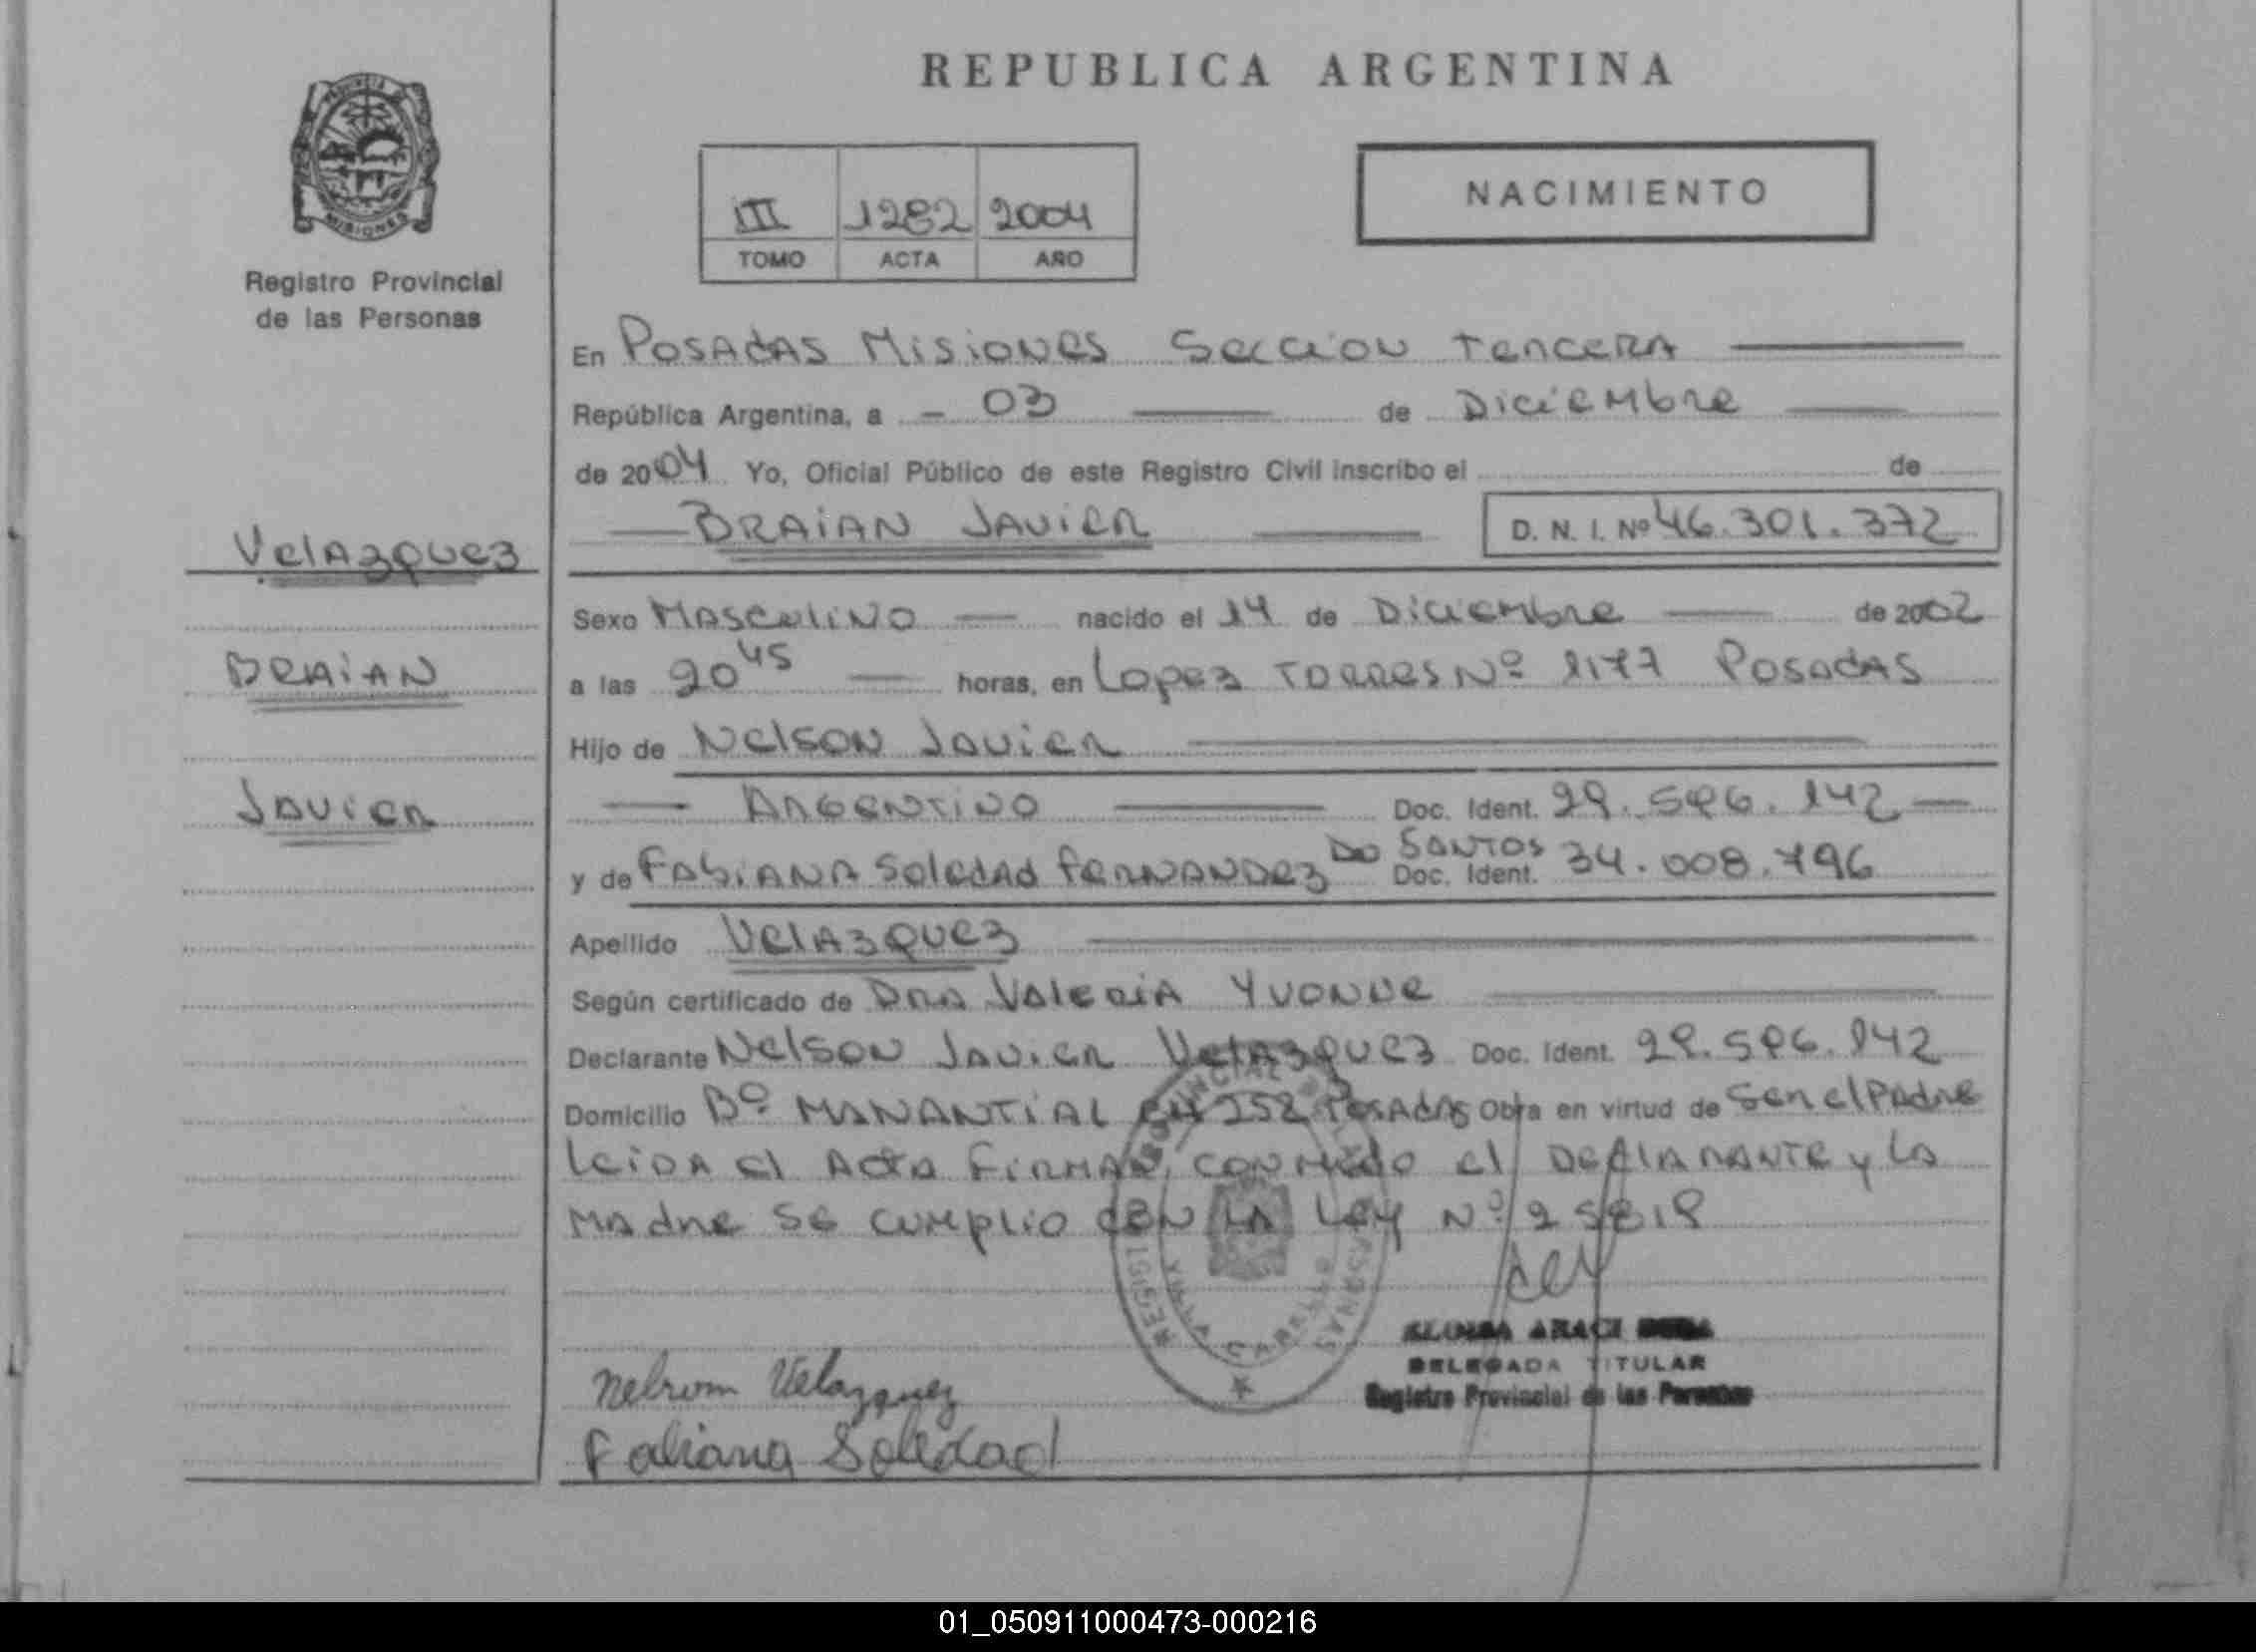 REPUBLICA ARGENTINA
PROVINCIA DE
MISIONES
Registro Provincial
de las Personas
III 1282 2004
TOMO ACTA AÑO
NACIMIENTO
En Posadas Misiones Seccion Tercera
República Argentina, a 03 de Diciembre
de 2004 Yo, Oficial Público de este Registro Civil inscribo el de
BRAIAN JAVIER D. N. I. Nº 46.301.372
Velazquez
BRAIAN
Javier
Sexo Masculino nacido el 14 de Diciembre de 2002
a las 20 45 horas, en Lopez Torres Nº 1177 Posadas
Hijo de Nelson Javier
Argentino Doc. Ident. 29.596.142
y de Fabiana Soledad Fernandez Do Santos Doc. Ident. 34.008.796
Apellido Velazquez
Según certificado de Dra Valeria Yvonne
Declarante Nelson Javier Velazquez Doc. Ident. 29.596.142
Domicilio Bº Manantial CH 252 Posadas Obra en virtud de Ser el Padre
Leida el Acta Firman conmigo el Declarante y la
Madre se cumplio con la Ley Nº 25819
ARACI
DELEGADA TITULAR
Registro Provincial de las Personas
Nelson Velazquez
Fabiana Soledad
01_050911000473-000216